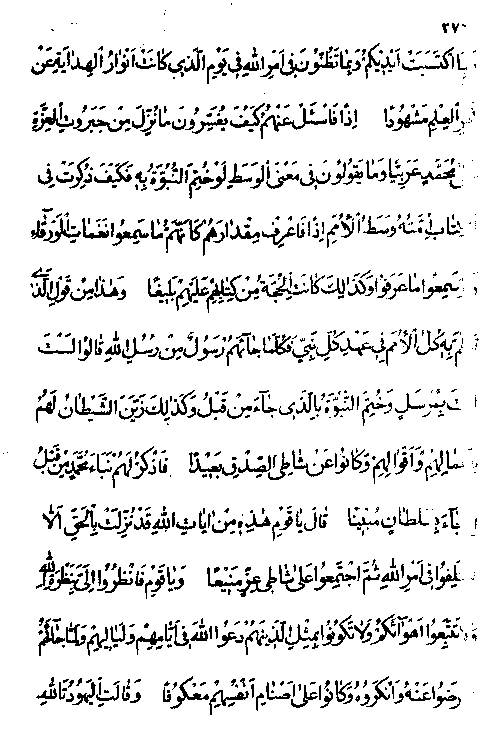 ٢٧٠
اكتسبت ايديكم وبما تظنّون فى امر الله فى يوم الّذى كانت انوار الهداية عن
العلم مشهودا اذا فاسئل عنهم كيف يفسّرون ما نزّل من جبروت العزّة
محمّد عربيّا وما يقولون فى معنى الوسط لو ختم النّبوّة به فكيف ذكرت فى
امّته وسط الأمم اذا فاعرف مقدارهم كانّهم ما سمعوا نغمات الورقاء
سمعوا ما عرفوا وكذلك كانت الحجّة من كتابهم عليهم بليغا وهذا من قول الّذى
به كلّ الأمم فى عهد كلّ نبىّ فكلّما جائهم رسول من رسل الله قالوا لست
بمرسل وختم النّبوّة بالّذى جاء من قبل وكذلك زيّن الشّيطان لهم
اعمالهم واقوالهم وكانوا عن شاطئ الصّدق بعيدا فاذكر لهم نباء محمّد من قبل
جاء بسلطان مبينا قال يا قوم هذه من ايات الله قد نزّلت بالحقّ الا
فى امر الله ثمّ اجتمعوا على شاطئ عزّ منيعا ويا قوم فانظروا الىّ بنظرة الله
تتّبعوا اهوائكم ولا تكونوا بمثل الّذينهم دعوا الله فى ايّامهم ولياليهم ولمّا جائهم
عنه وانكروه وكانوا على اصنام انفسهم معكوفا وقالت اليهود تالله